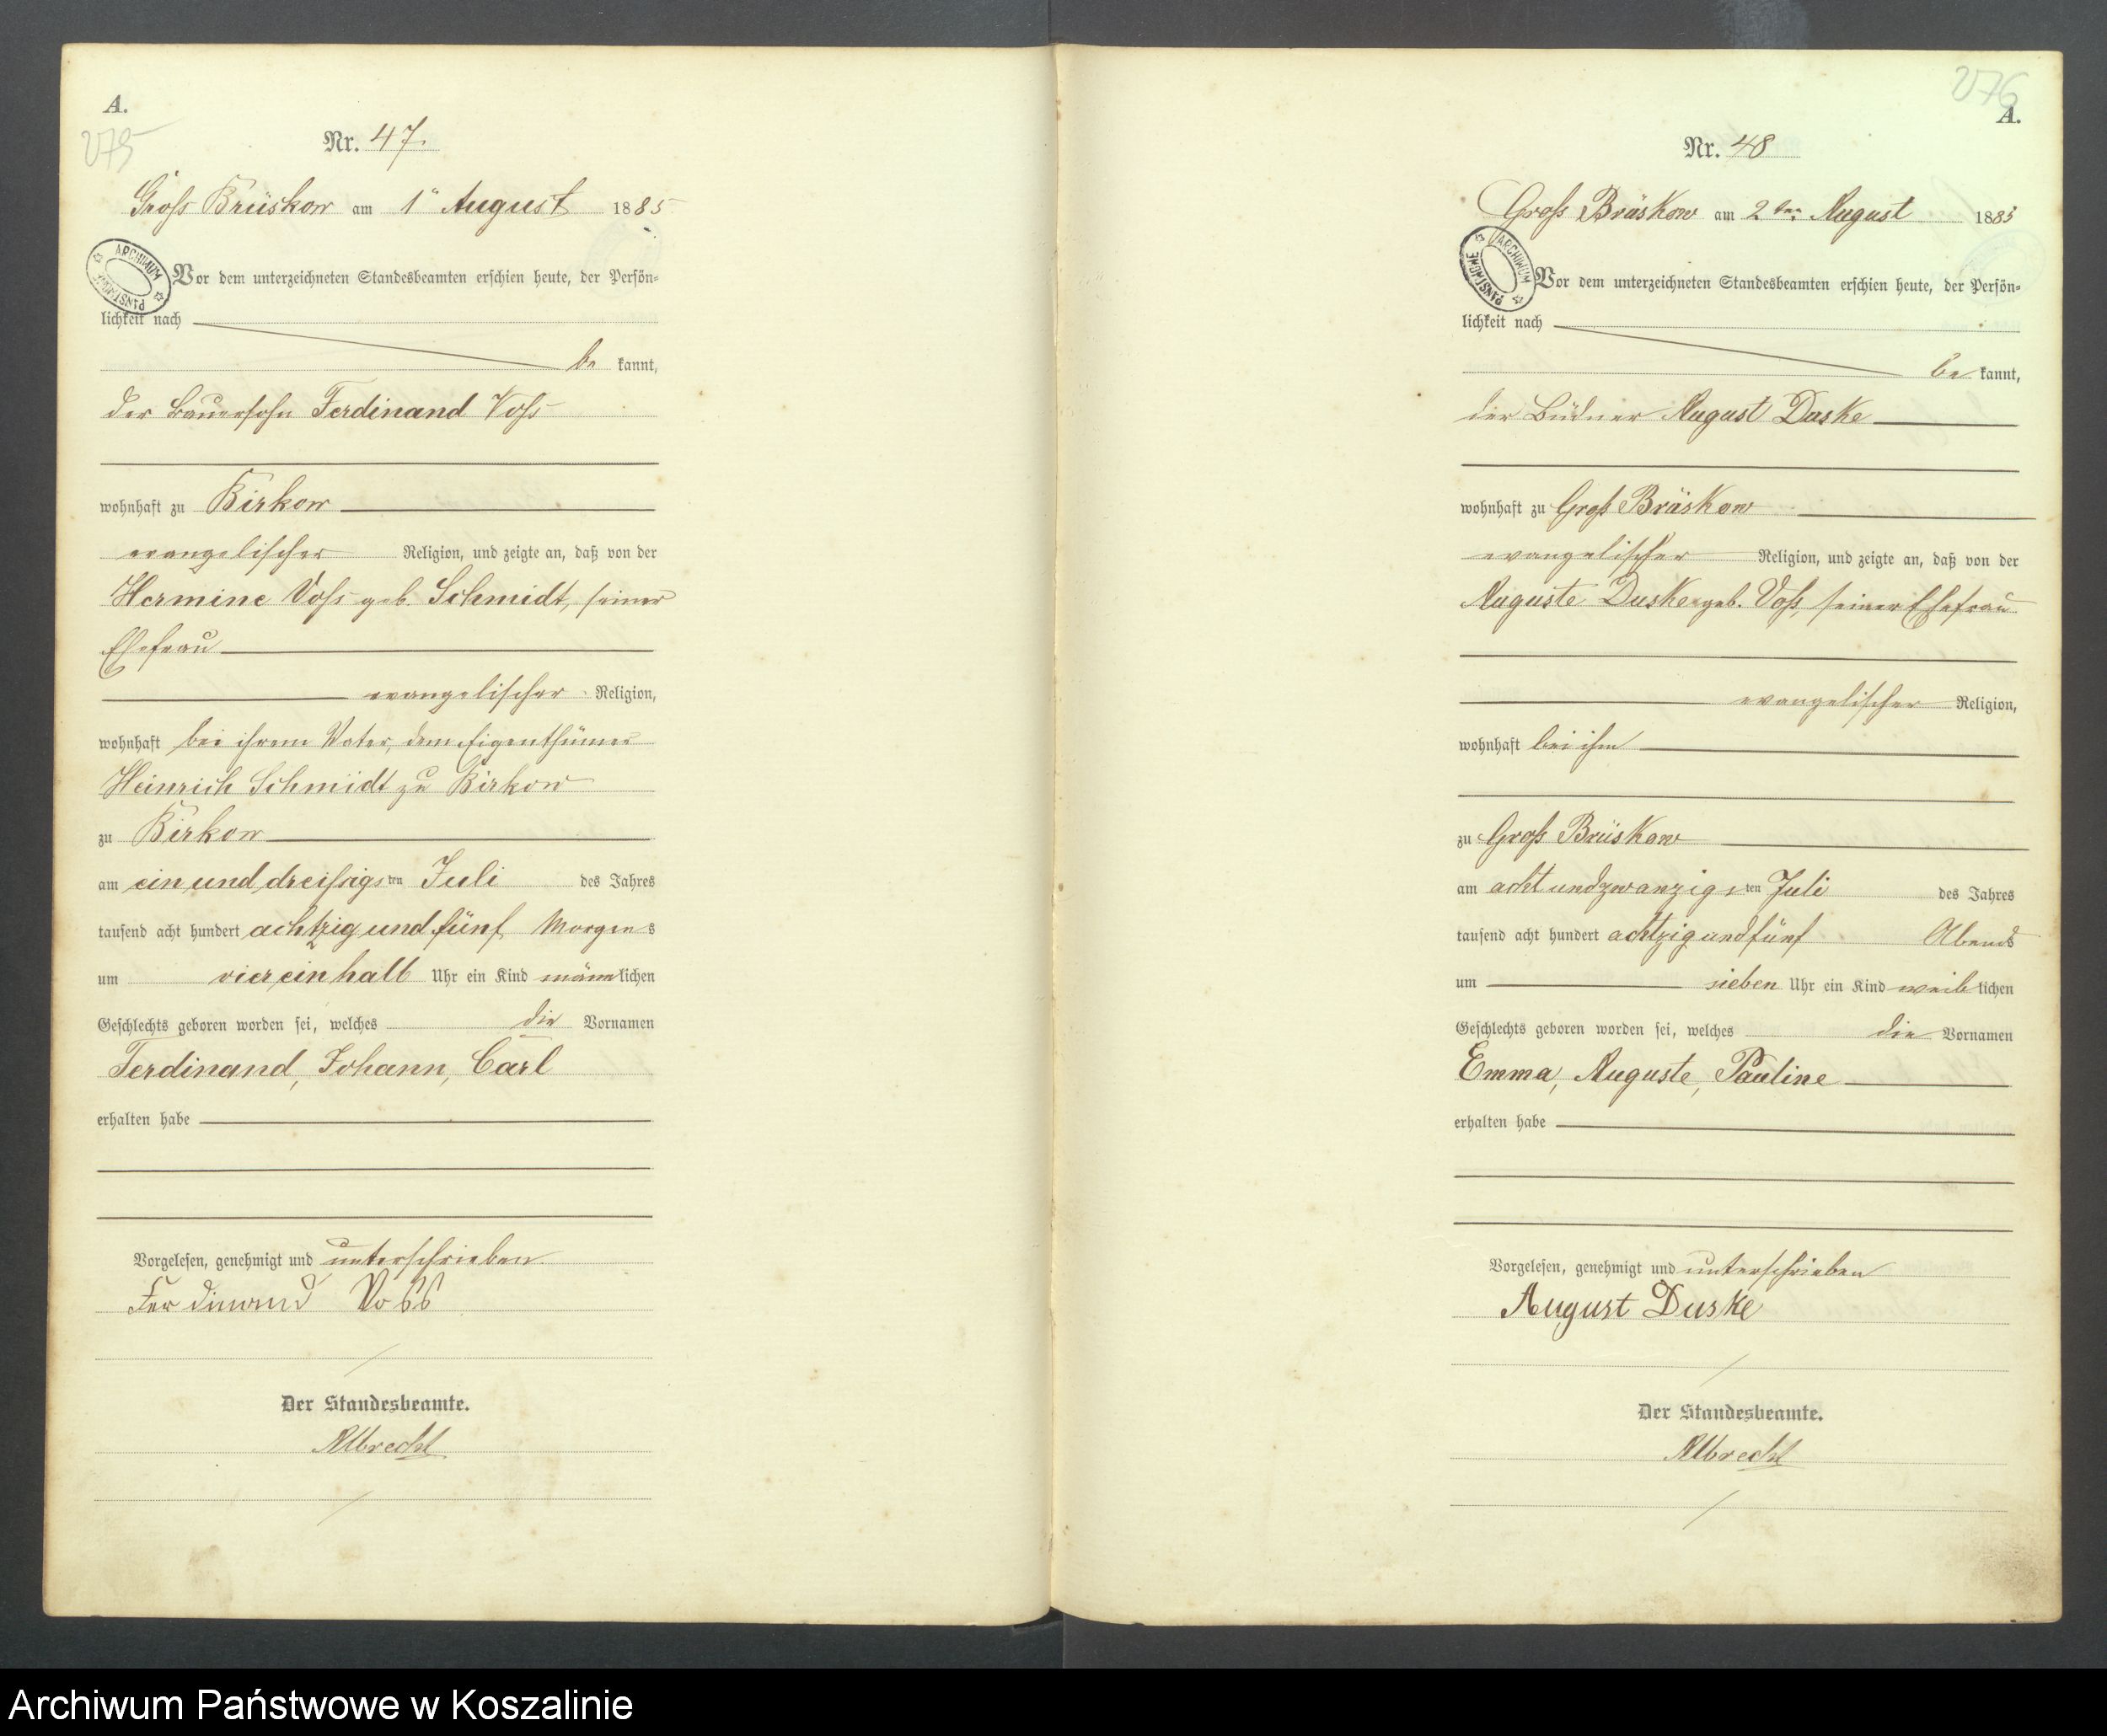 A.
275
Nr. 47.
Gross Brüskow am 1ten August 1885
ARCHIWUM PAŃSTWOWE
Vor dem unterzeichneten Standesbeamten erschien heute, der Persön=
lichkeit nach
be kannt,
der Bauersohn Ferdinand Voss
wohnhaft zu Birkow
evangelischer Religion, und zeigte an, daß von der
Hermine Voss geb. Schmidt, seiner
Ehefrau
evangelischer Religion,
wohnhaft bei ihrem Vater, dem Eigenthümer
Heinrich Schmidt zu Birkow
zu Birkow
am ein und dreissigsten Juli des Jahres
tausend acht hundert achtzig und fünf Morgens
um vier ein halb Uhr ein Kind männlichen
Geschlechts geboren worden sei, welches die Vornamen
Ferdinand, Johann, Carl
erhalten habe
Vorgelesen, genehmigt und unterschrieben
Ferdinand Voss
Der Standesbeamte.
Albrecht
276
A.
Nr. 48
Groß Brüskow am 2ten August 1885
ARCHIWUM PAŃSTWOWE
Vor dem unterzeichneten Standesbeamten erschien heute, der Persön=
lichkeit nach
be kannt,
der Büdner August Duske
wohnhaft zu Groß Brüskow
evangelischer Religion, und zeigte an, daß von der
Auguste Duske geb. Voß, seiner Ehefrau
evangelischer Religion,
wohnhaft bei ihm
zu Groß Brüskow
am acht und zwanzigsten Juli des Jahres
tausend acht hundert achtzig und fünf Abends
um sieben Uhr ein Kind weiblichen
Geschlechts geboren worden sei, welches die Vornamen
Emma, Auguste, Pauline
erhalten habe
Vorgelesen, genehmigt und unterschrieben
August Duske
Der Standesbeamte.
Albrecht
Archiwum Państwowe w Koszalinie